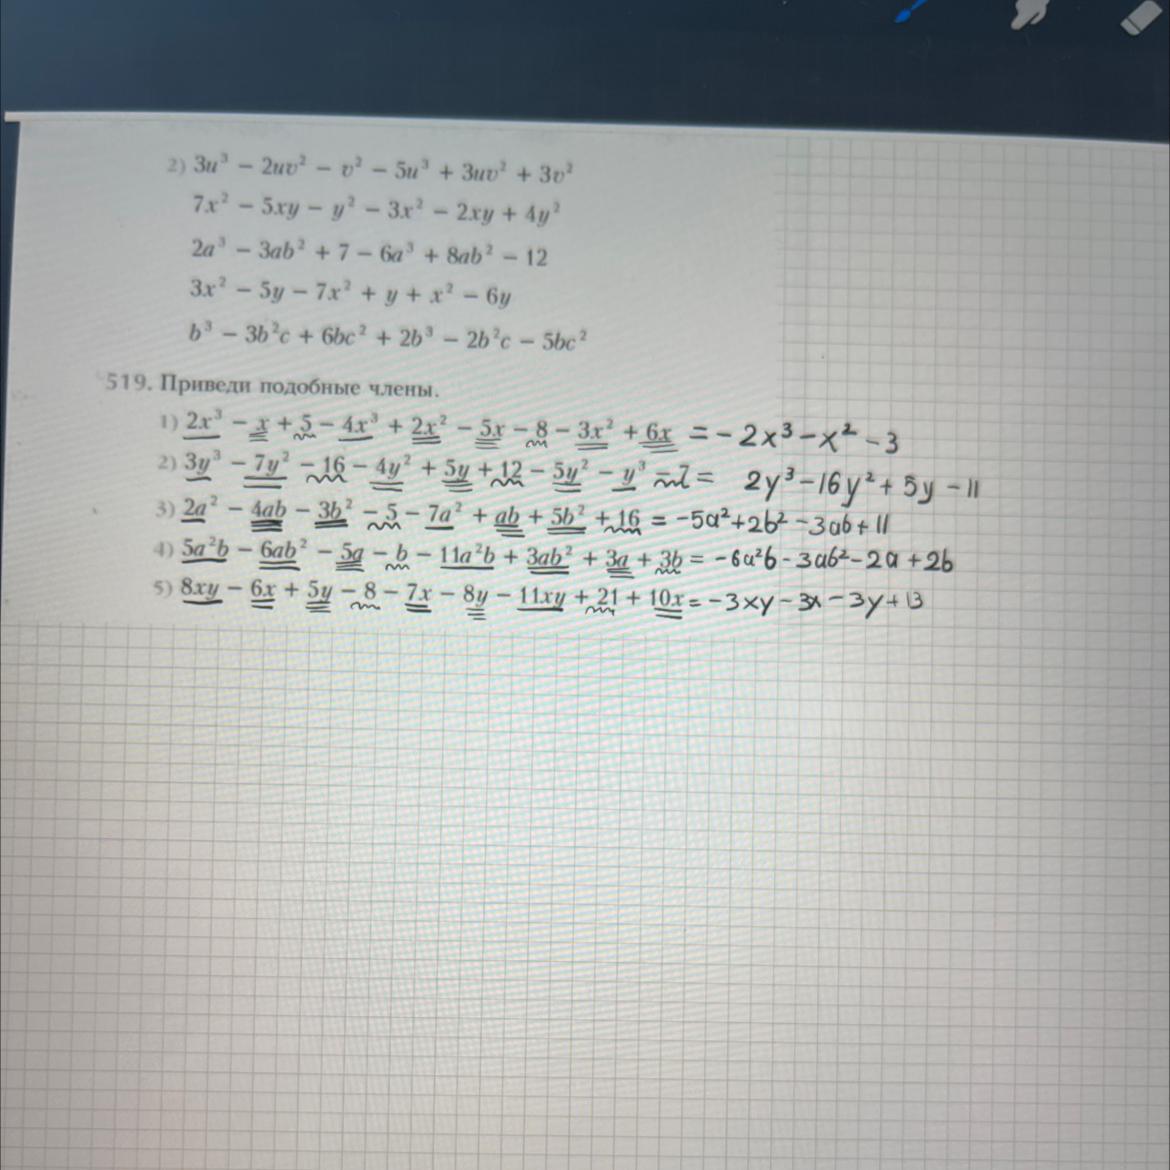 2) 3u³ − 2uv² − v² − 5u³ + 3uv² + 3v²
7x² − 5xy − y² − 3x² − 2xy + 4y²
2a³ − 3ab² + 7 − 6a³ + 8ab² − 12
3x² − 5y − 7x² + y + x² − 6y
b³ − 3b²c + 6bc² + 2b³ − 2b²c − 5bc²
519. Приведи подобные члены.
1) 2x³ − x + 5 − 4x³ + 2x² − 5x − 8 − 3x² + 6x = −2x³ − x² − 3
2) 3y³ − 7y² − 16 − 4y² + 5y + 12 − 5y² − y³ − 7 = 2y³ − 16y² + 5y − 11
3) 2a² − 4ab − 3b² − 5 − 7a² + ab + 5b² + 16 = −5a² + 2b² − 3ab + 11
4) 5a²b − 6ab² − 5a − b − 11a²b + 3ab² + 3a + 3b = −6a²b − 3ab² − 2a + 2b
5) 8xy − 6x + 5y − 8 − 7x − 8y − 11xy + 21 + 10x = −3xy − 3x − 3y + 13